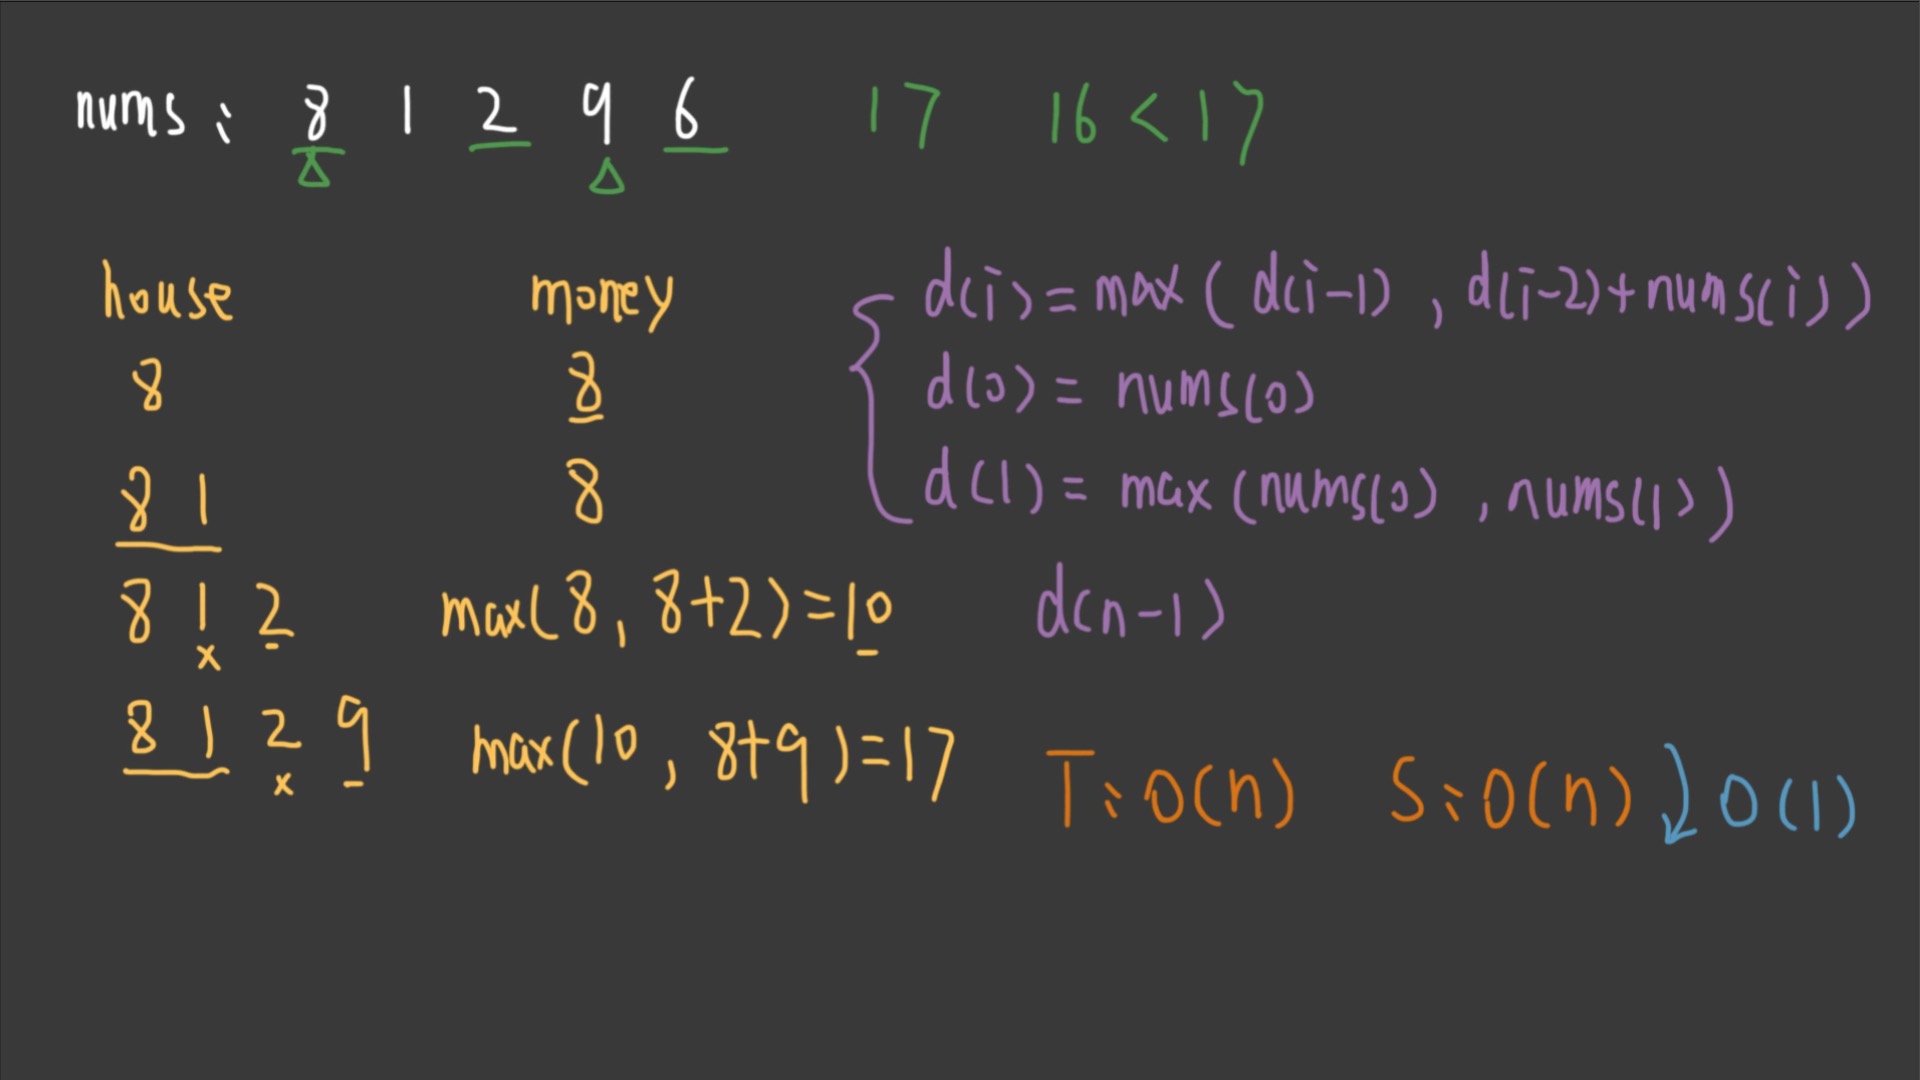 nums: 8 1 2 9 6 17 16 < 17
house money
8 8
8 1 8
8 1 2 max(8, 8+2)=10
x
8 1 2 9 max(10, 8+9)=17
x
d(i)=max(d(i-1), d(i-2)+nums(i))
d(0)= nums(0)
d(1)= max(nums(0), nums(1))
d(n-1)
T: O(n) S: O(n) O(1)